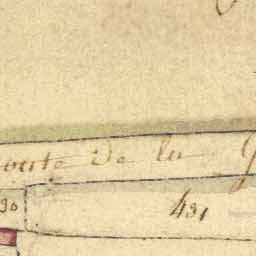 oute de la
30
431